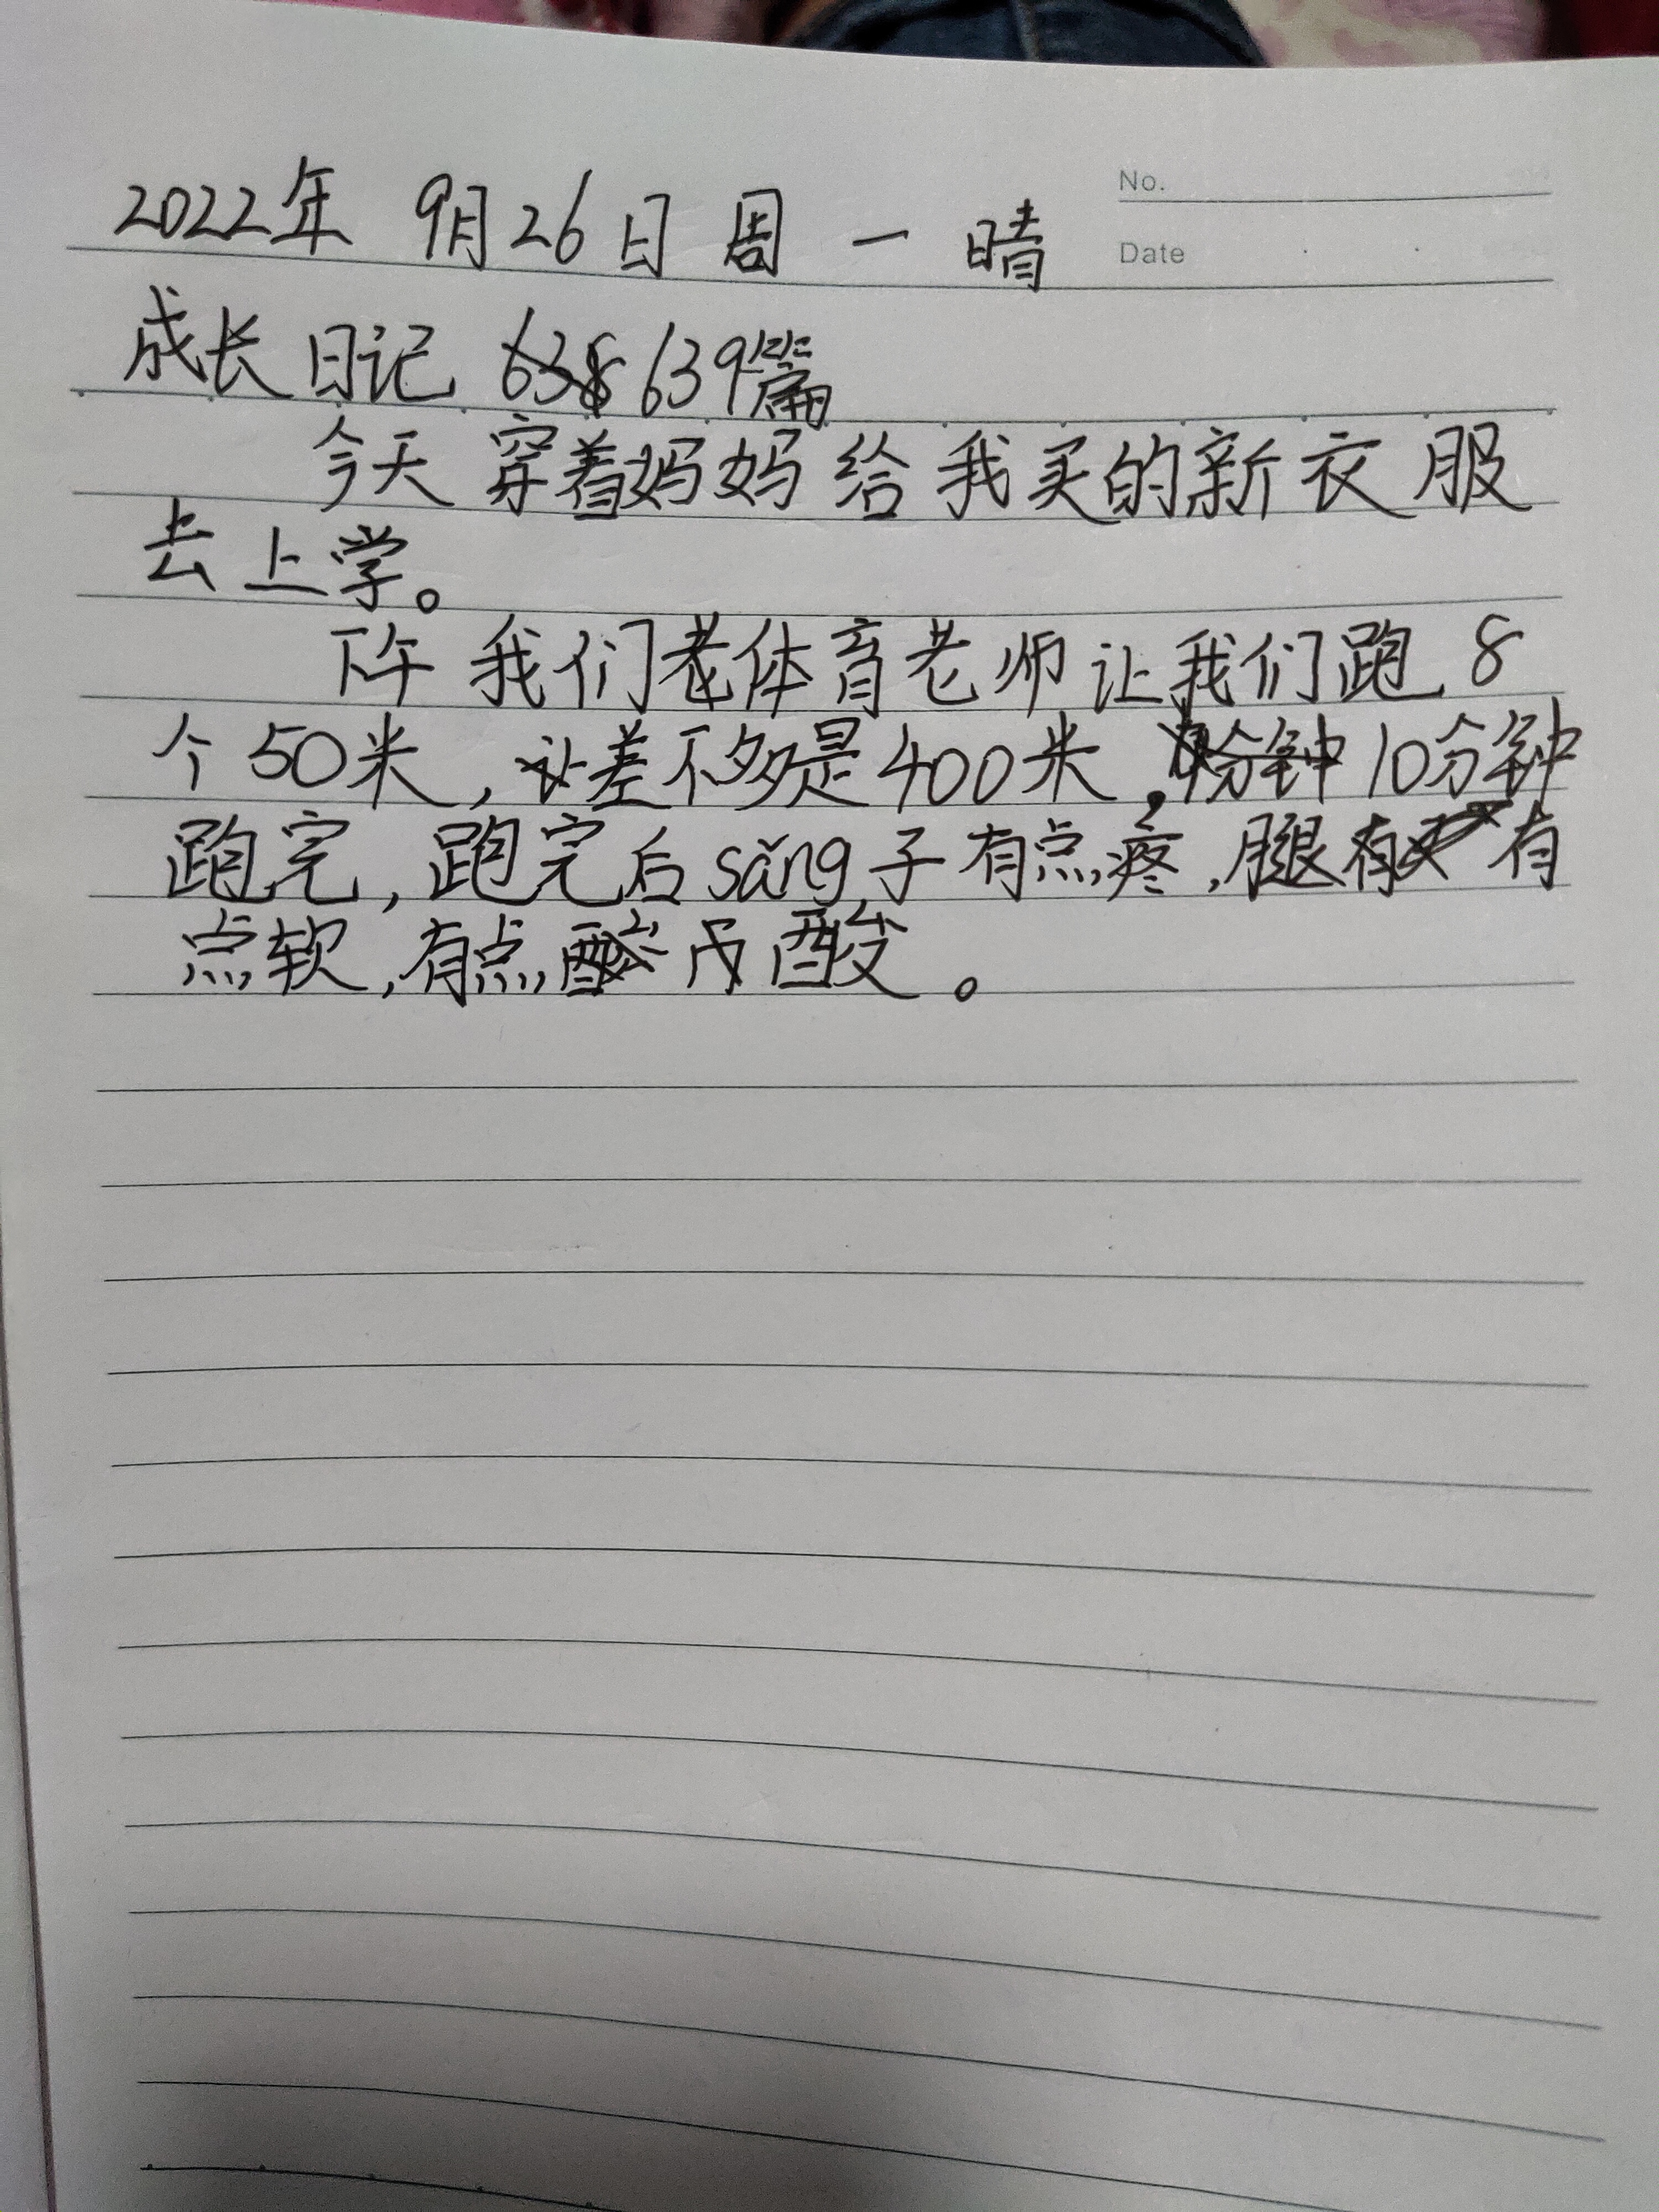 No.
2022年 9月26日 周一 晴
Date
成长日记 638 639篇
今天穿着妈妈给我买的新衣服
去上学。
下午我们老体育老师让我们跑8
个50米,让差不多是400米,分钟10分钟
跑完,跑完后sǎng子有点疼,腿有有
点软,有点酸酸。